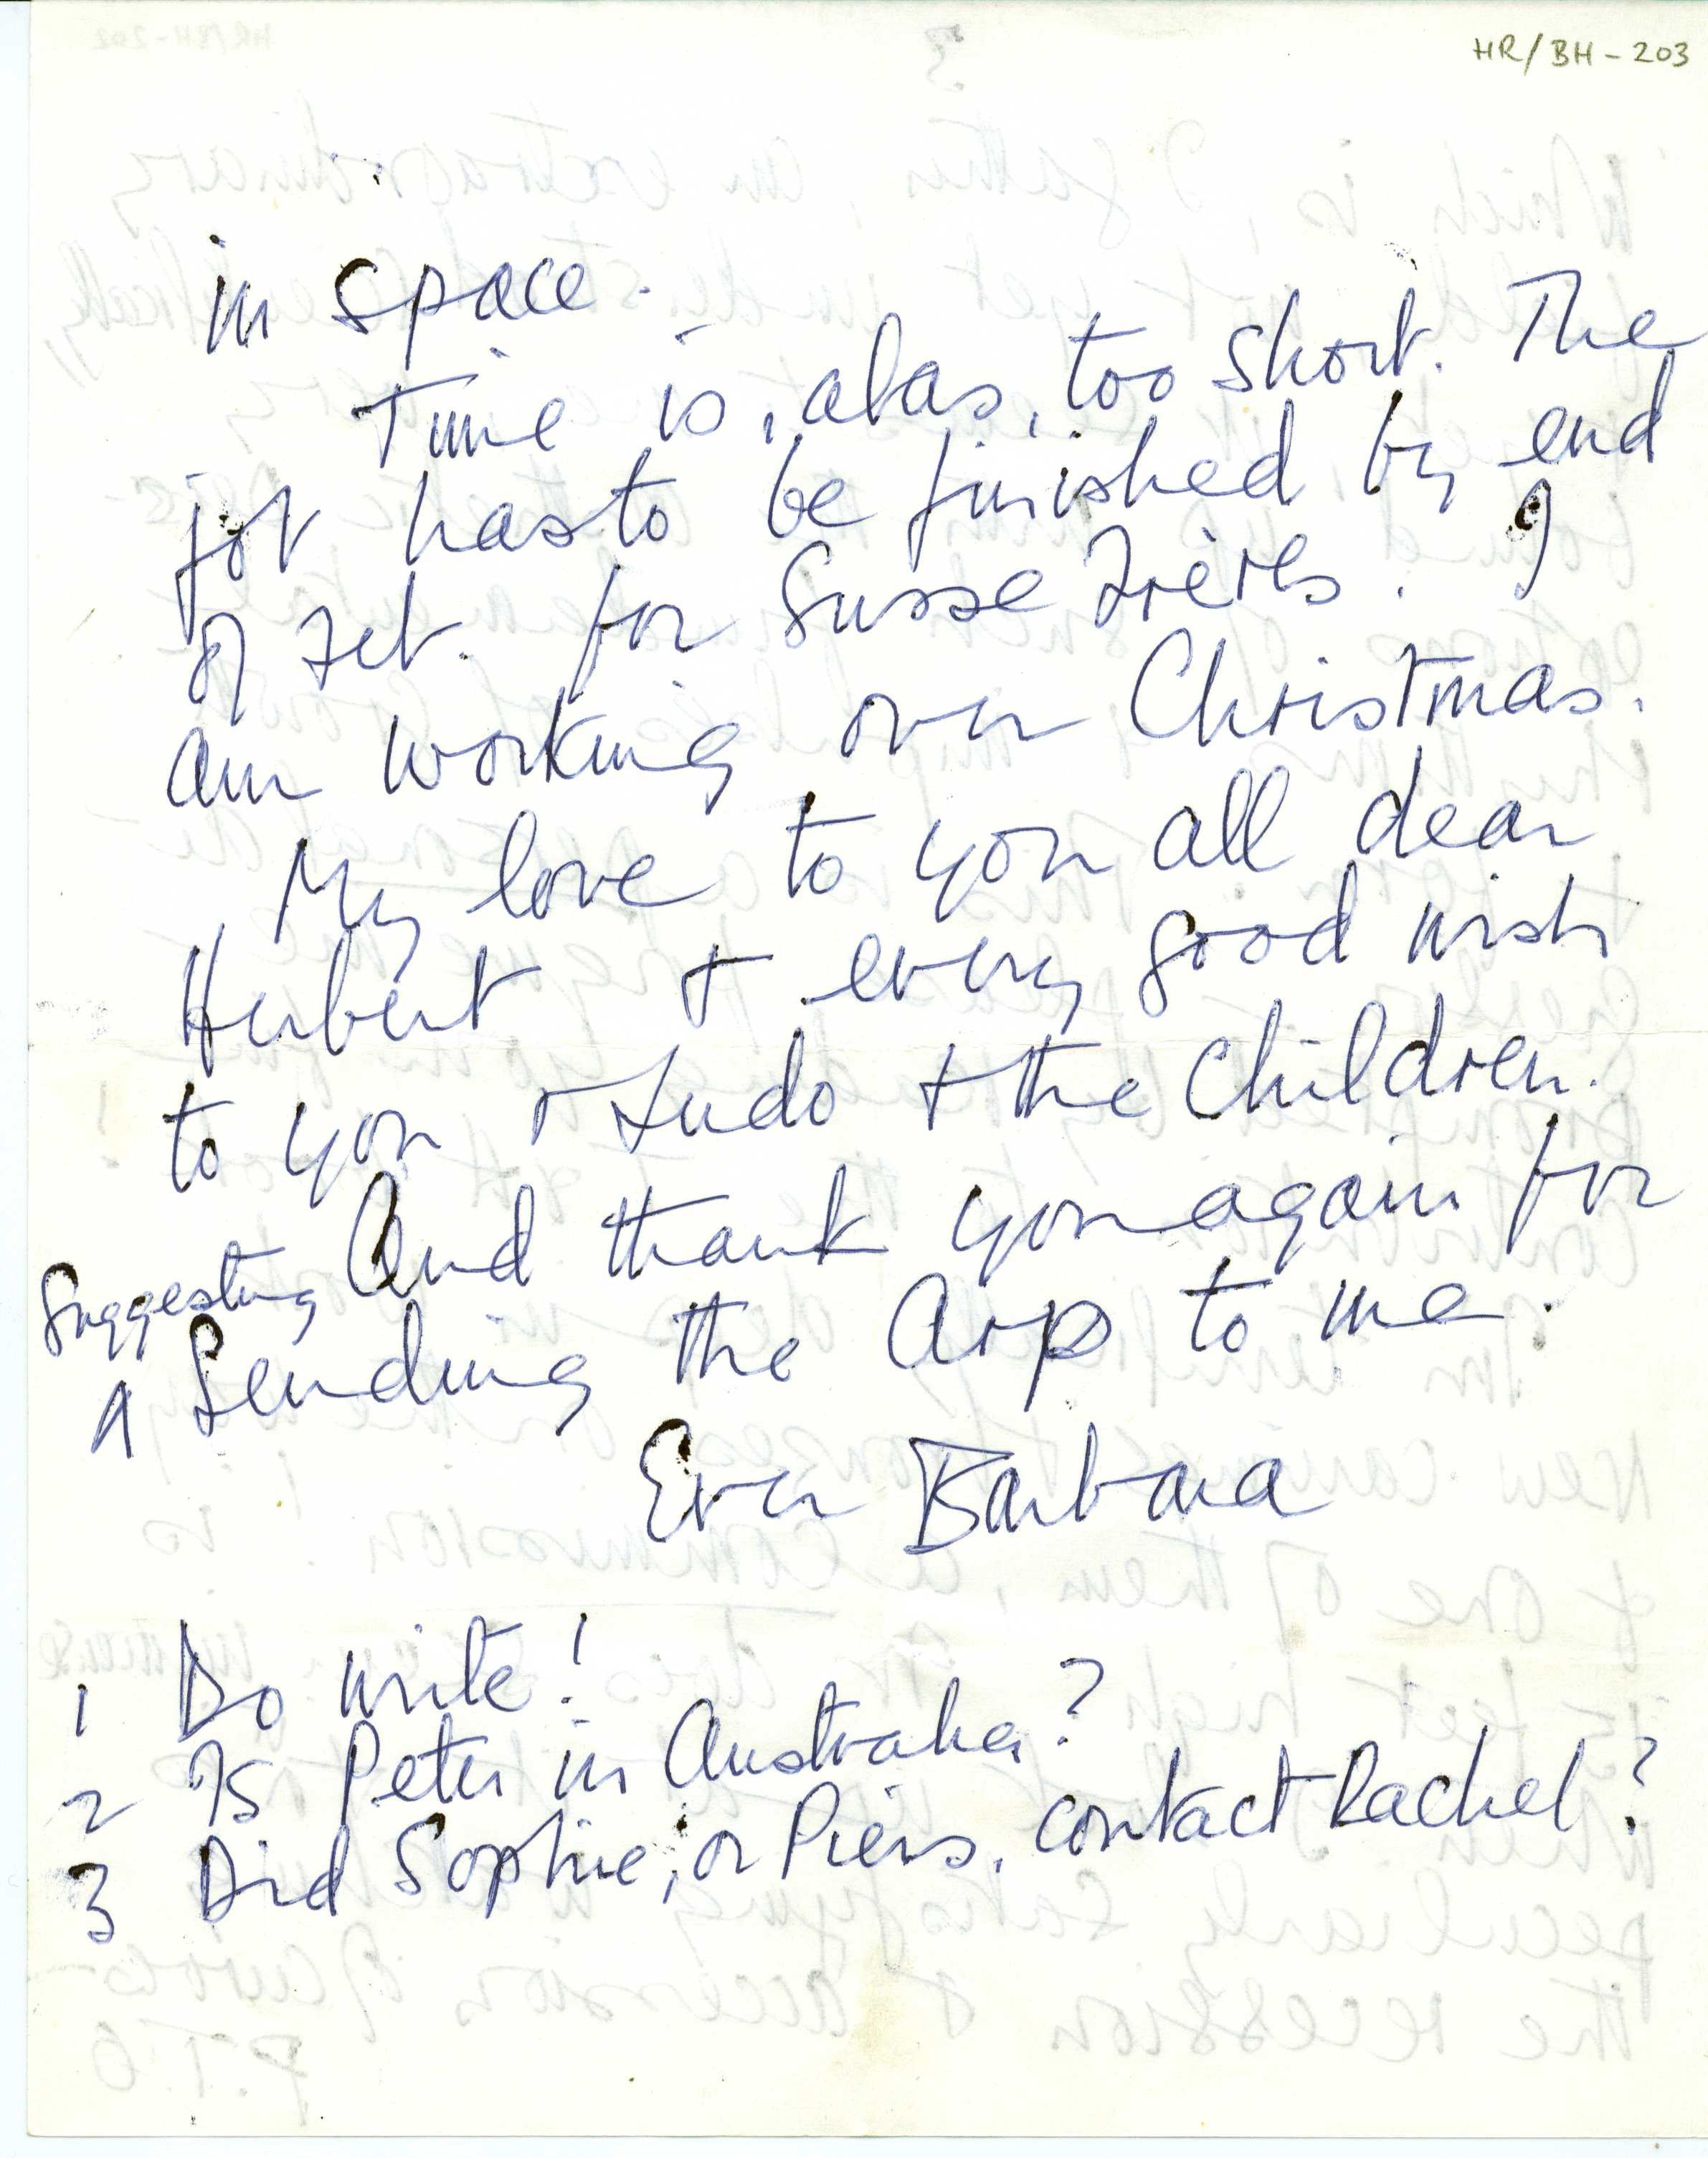 HR/BH - 203
in space.
Time is, alas, too short. The
job has to be finished by end
of Feb. for Susse Frères. I
am working over Christmas.
My love to you all dear
Herbert + every good wish
to you + Ludo + the children.
And thank you again for
suggesting
sending the Arp to me.
Ever Barbara
1 Do write!
2 Is Peter in Australia?
3 Did Sophie, or Piers, contact Rachel?